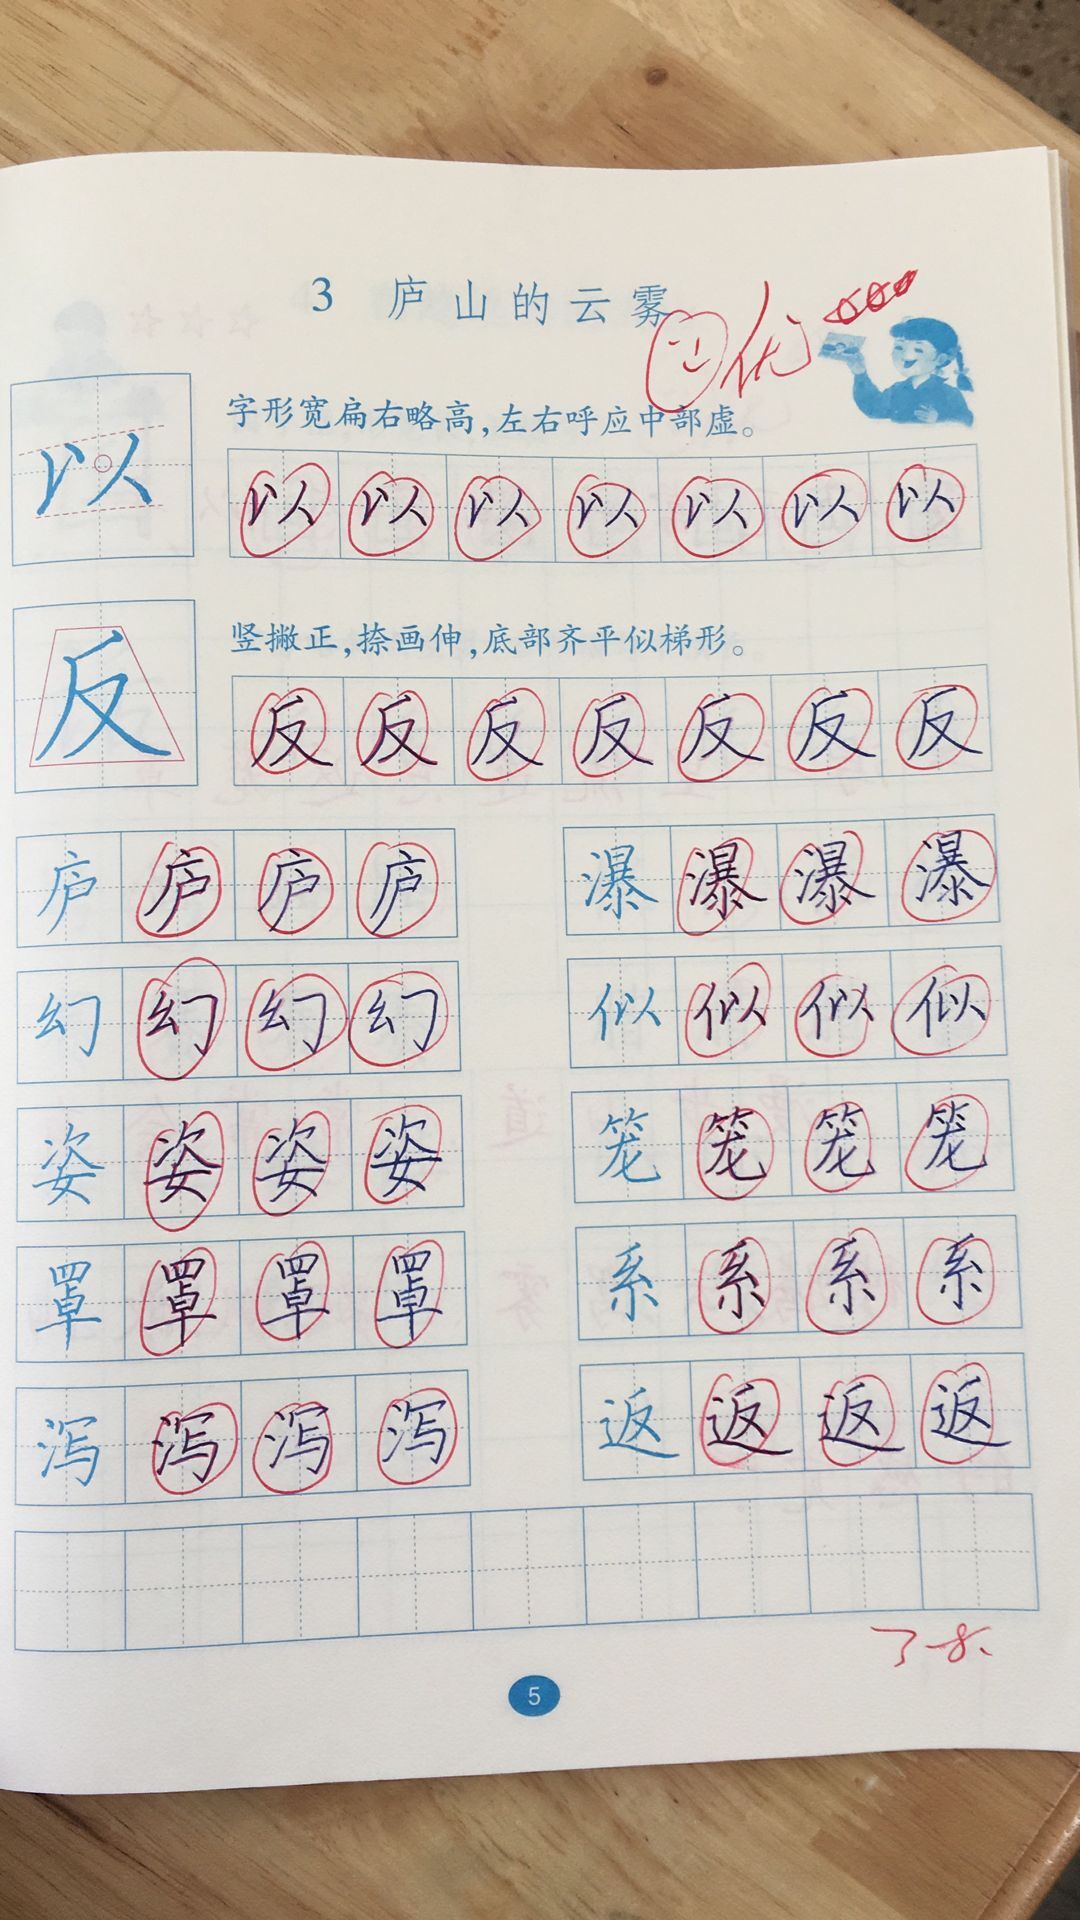 3 庐山的云雾
优
以
字形宽扁右略高，左右呼应中部虚。
以 以 以 以 以 以 以
反
竖撇正，捺画伸，底部齐平似梯形。
反 反 反 反 反 反 反
庐 庐 庐 庐 瀑 瀑 瀑 瀑
幻 幻 幻 幻 似 似 似 似
姿 姿 姿 姿 笼 笼 笼 笼
罩 罩 罩 罩 系 系 系 系
泻 泻 泻 泻 返 返 返 返
5